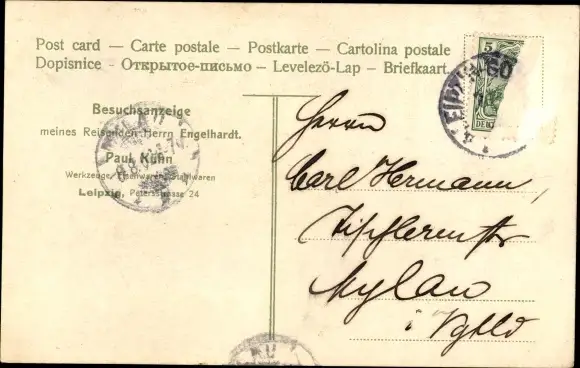 Post card — Carte postale — Postkarte — Cartolina postale
Dopisnice - Открытое-письмо – Levelező-Lap – Briefkaart.
Besuchsanzeige
meines Reisenden Herrn Engelhardt.
Paul Kühn
Werkzeuge, Eisenwaren, Stahlwaren
Leipzig, Petersstrasse 24
5
Herrn
Carl Hermann,
Tischlermstr
Mylau
i Vgtld